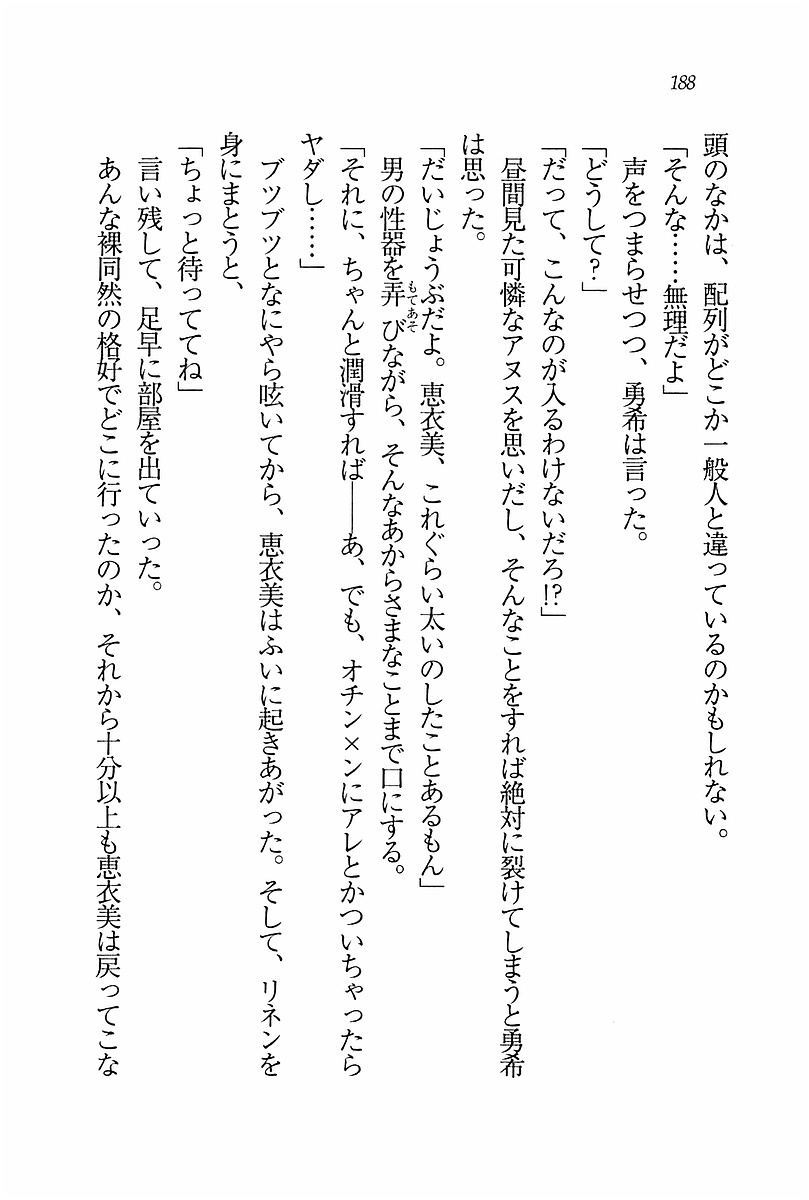 188
頭のなかは、配列がどこか一般人と違っているのかもしれない。
「そんな……無理だよ」
声をつまらせつつ、勇希は言った。
「どうして？」
「だって、こんなのが入るわけないだろ!?」
昼間見た可憐なアヌスを思いだし、そんなことをすれば絶対に裂けてしまうと勇希
は思った。
「だいじょうぶだよ。恵衣美、これぐらい太いのしたことあるもん」
男の性器を弄もてあそびながら、そんなあからさまなことまで口にする。
「それに、ちゃんと潤滑すれば――あ、でも、オチン×ンにアレとかついちゃったら
ヤダし……」
ブツブツとなにやら呟いてから、恵衣美はふいに起きあがった。そして、リネンを
身にまとうと、
「ちょっと待っててね」
言い残して、足早に部屋を出ていった。
あんな裸同然の格好でどこに行ったのか、それから十分以上も恵衣美は戻ってこな